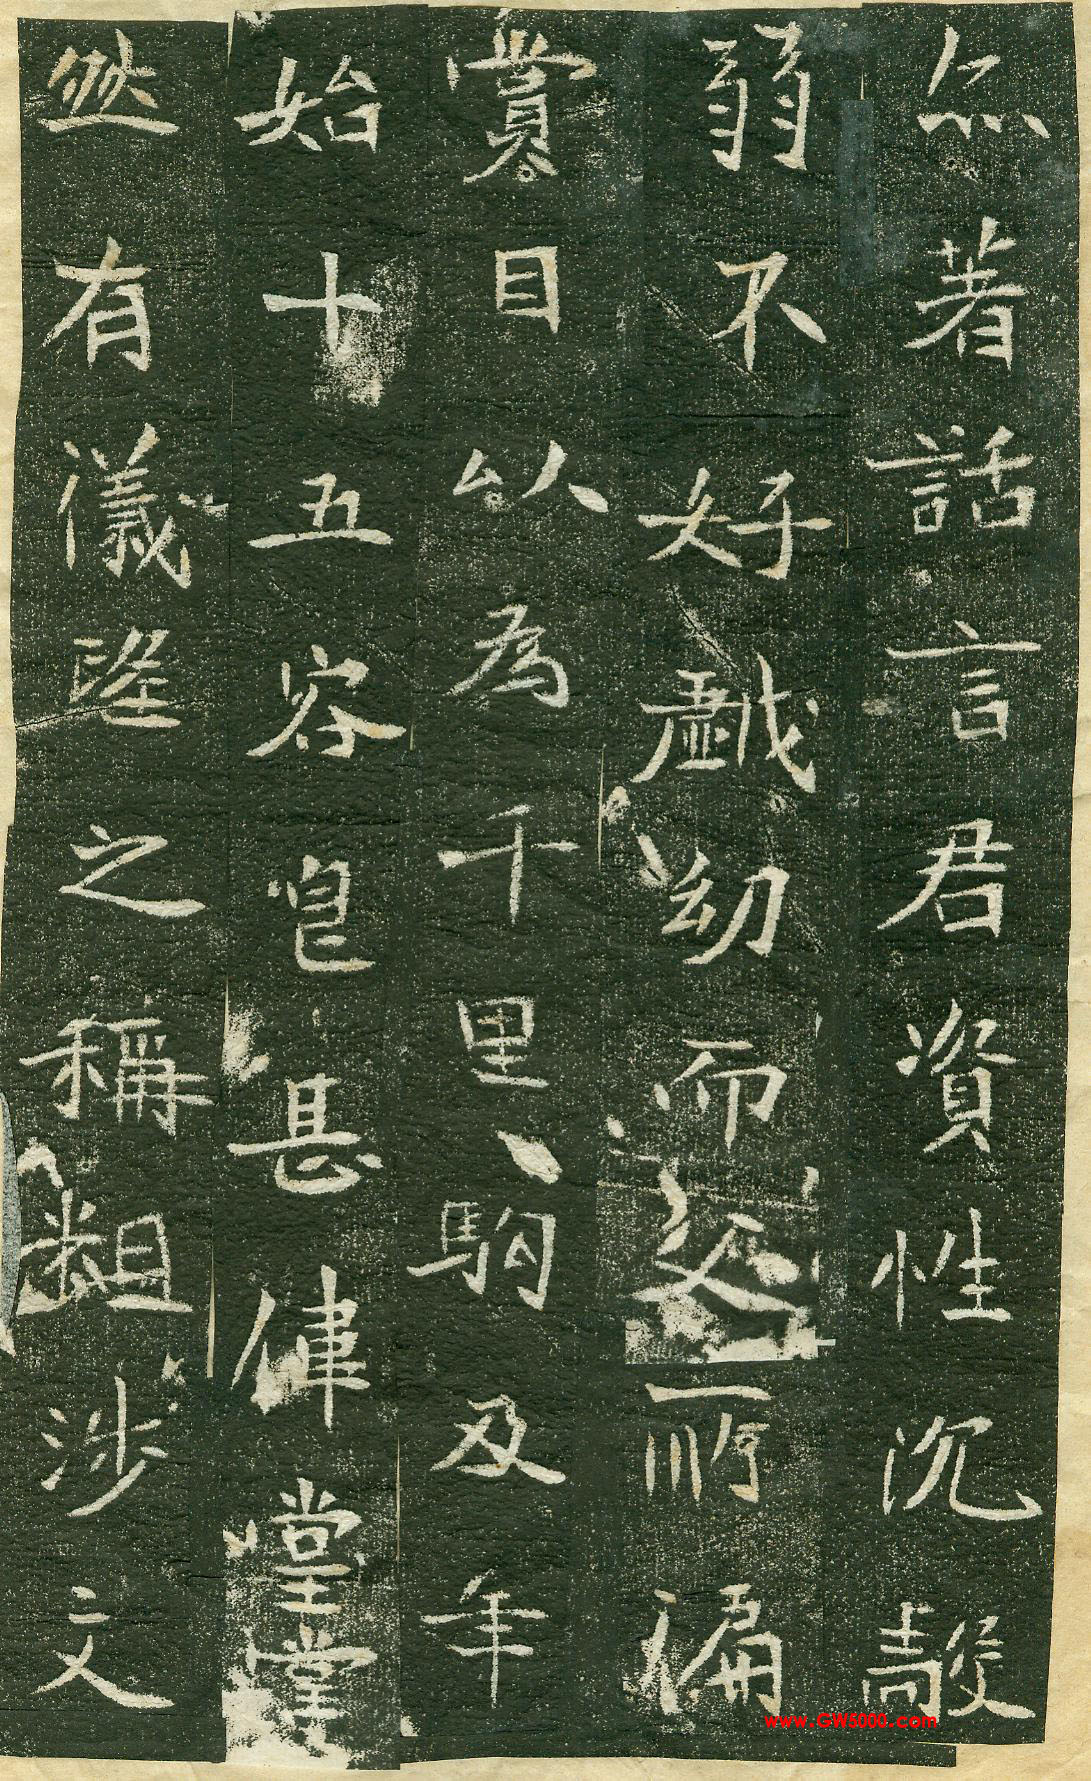 著話言君資性沉毅
弱不好戲幼而父所偏
賞目以為千里駒及年
始十五容皃甚偉堂堂
然有儀之稱粗涉文
www.GW5000.com